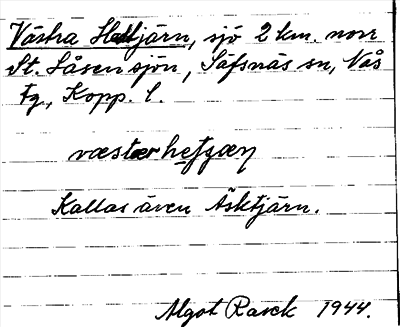 Västra Hättjärn, sjö 2 km. norr
St. Låsen sjön, Säfsnäs sn, Nås
fg., Kopp. l.
Kallas även Äsktjärn.
Algot Rasck 1944.